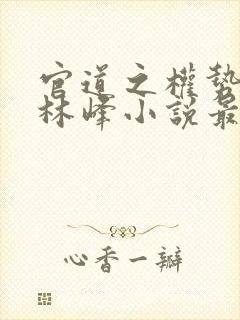 官道之權勢
林峰小說最
心香一瓣